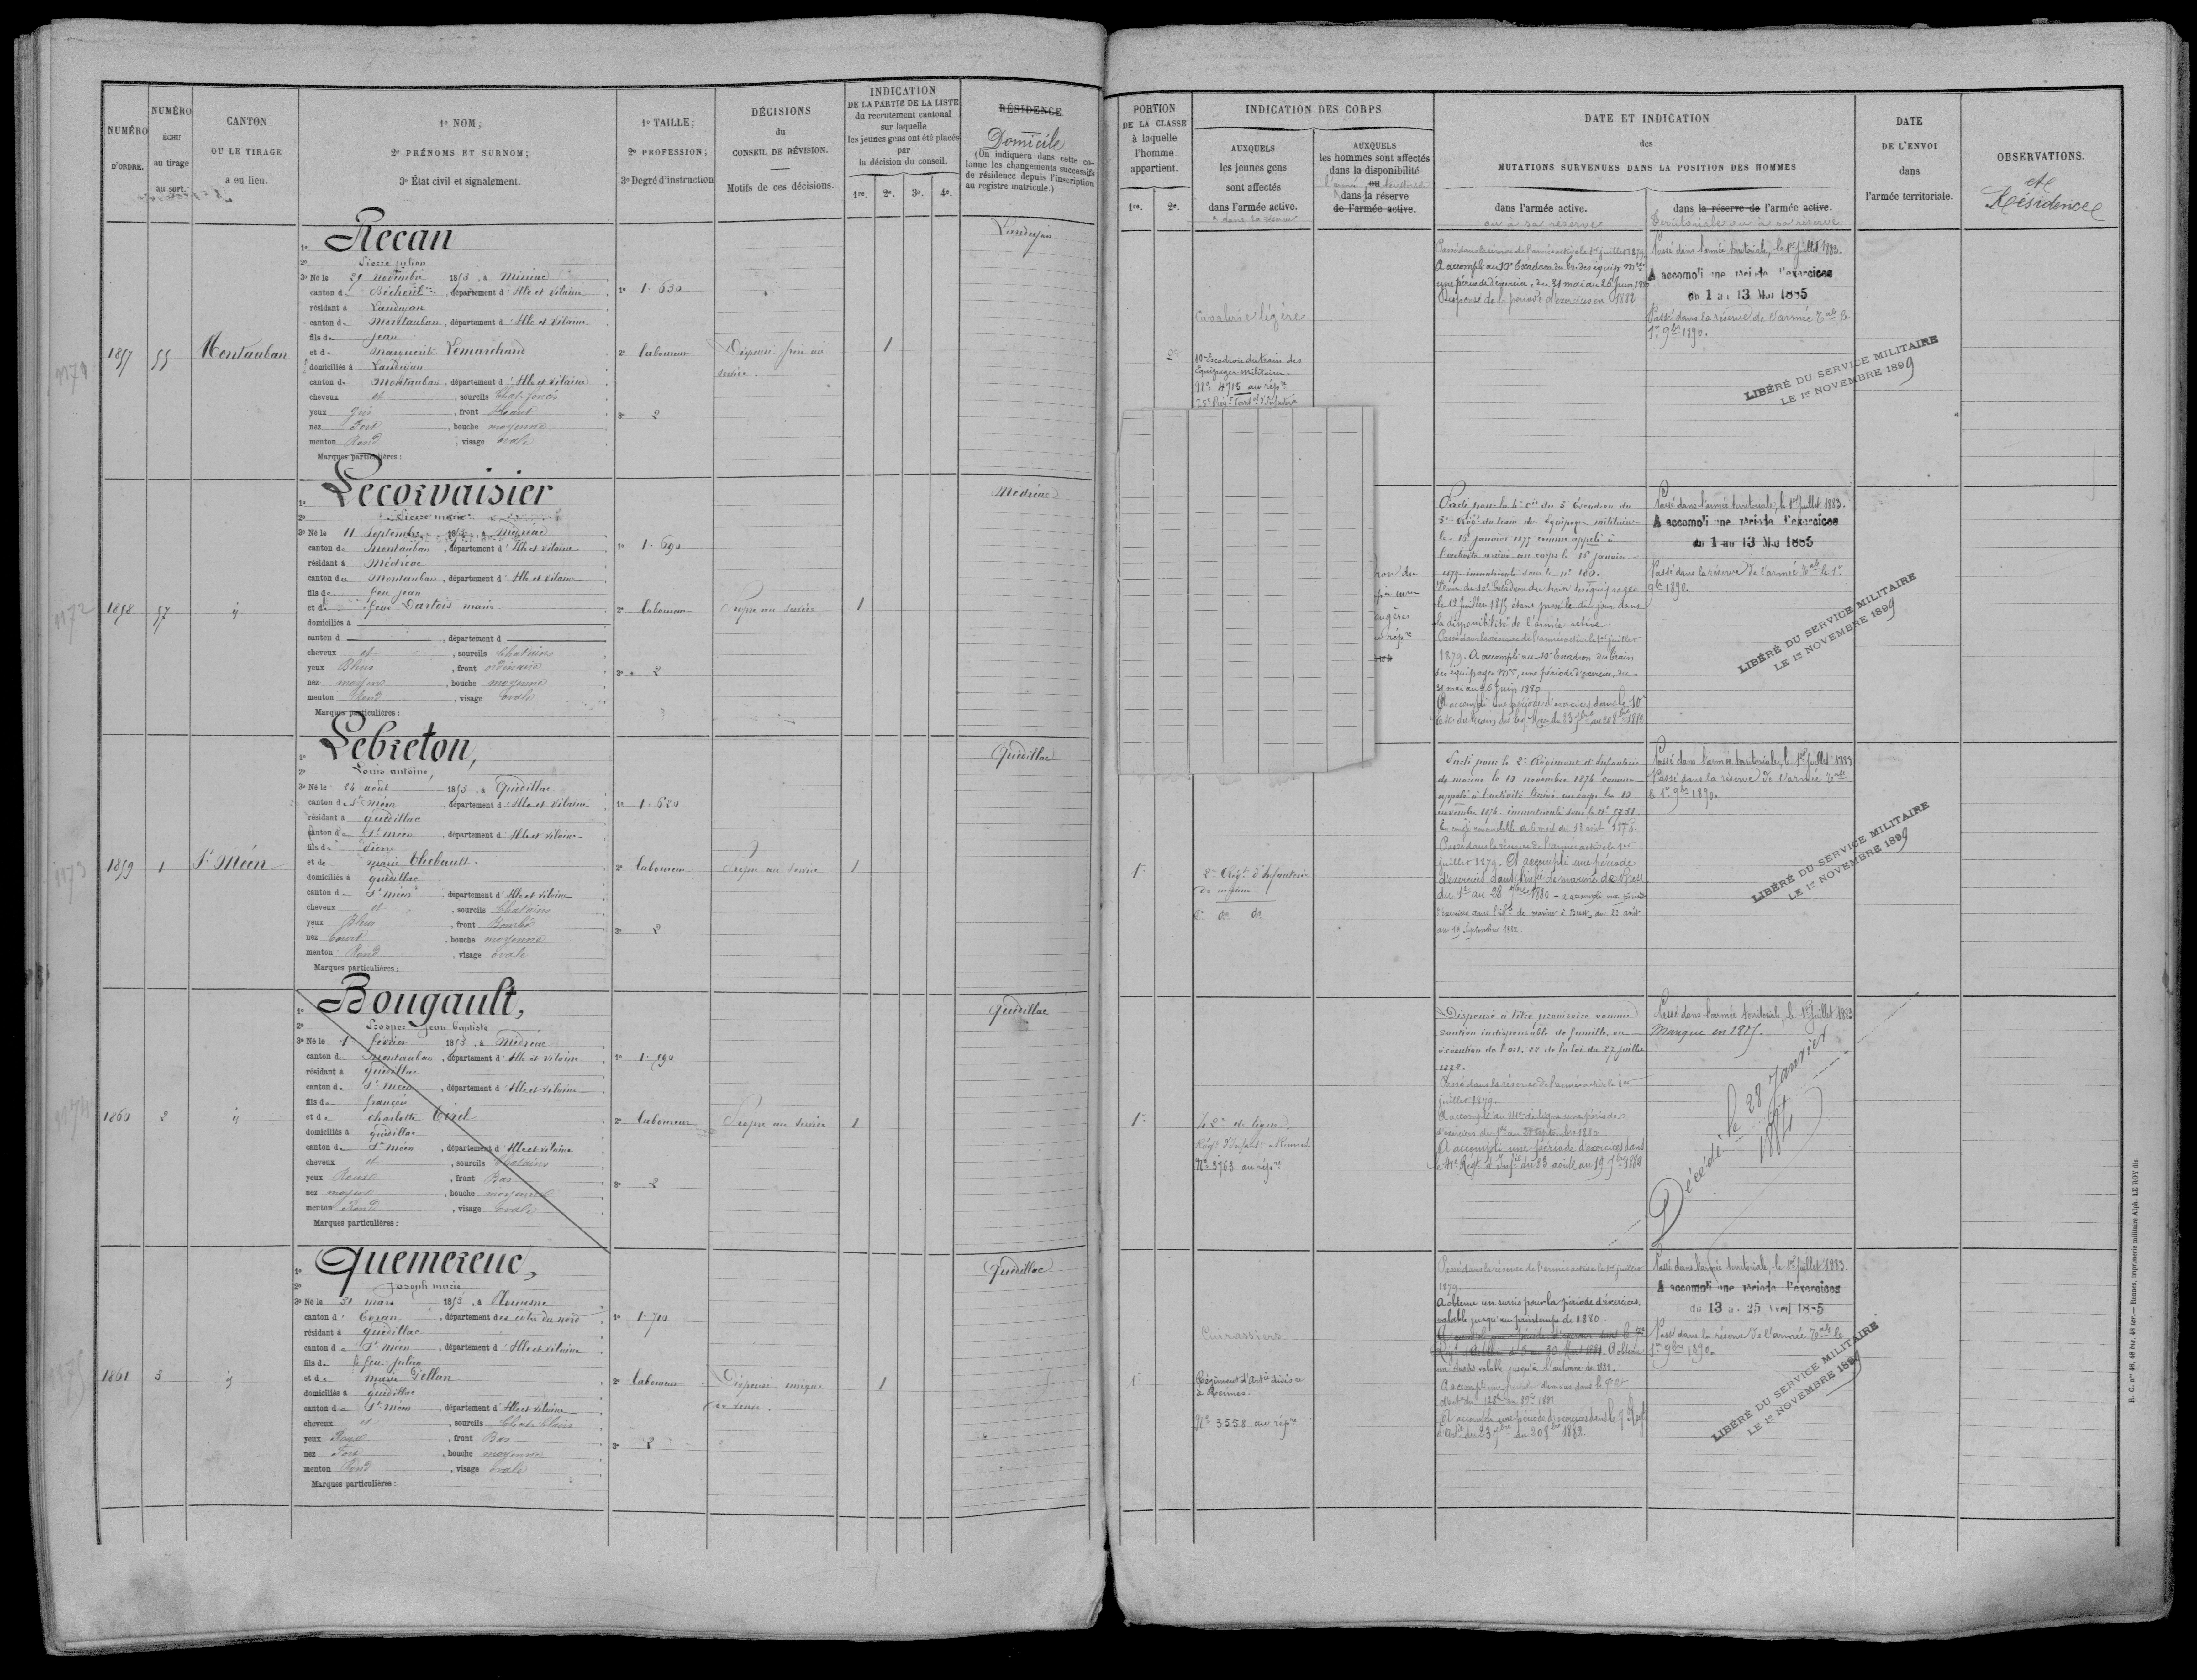 NUMÉRO
D'ORDRE.
NUMÉRO
ÉCHU
au tirage
au sort.
CANTON
OU LE TIRAGE
a eu lieu.
1º NOM;
2º PRÉNOMS ET SURNOM;
3º État civil et signalement.
1º TAILLE;
2º PROFESSION;
3º Degré d'instruction
DÉCISIONS
du
CONSEIL DE RÉVISION.
Motifs de ces décisions.
INDICATION
DE LA PARTIE DE LA LISTE
du recrutement cantonal
sur laquelle
les jeunes gens ont été placés
par
la décision du conseil.
1re. 2e. 3e. 4e.
RÉSIDENCE.
Domicile
(On indiquera dans cette co-
lonne les changements successifs
de résidence depuis l'inscription
au registre matricule.)
1171
1857
55
Montauban
1º Recan
2º Pierre julien
3º Né le 21 novembre 1853, à Miniac
canton de Bécherel, département d'Ille et vilaine
résidant à Landujan
canton de Montauban, département d'Ille et vilaine
fils de Jean
et de Marguerite Lemarchand
domiciliés à Landujan
canton de Montauban, département d'Ille et vilaine
cheveux et, sourcils Chat. foncés
yeux gris, front Haut
nez Fort, bouche moyenne
menton Rond, visage ovale
Marques particulières :
1º 1.630
2º laboureur
3º 2
Dispensé frère au
service.
1
Landujan
1172
1858
57
id
1º Lecorvaisier
2º Pierre marie
3º Né le 11 Septembre 1853, à Médréac
canton de Montauban, département d'Ille et vilaine
résidant à Médréac
canton de Montauban, département d'Ille et vilaine
fils de feu jean
et de feue Dartois marie
domiciliés à
canton d , département d
cheveux et, sourcils Chatains
yeux Bleus, front ordinaire
nez moyen, bouche moyenne
menton Rond, visage ovale
Marques particulières :
1º 1.690
2º laboureur
3º 2
Propre au service
1
Médréac
1173
1859
1
St Méen
1º Lebreton,
2º Louis antoine,
3º Né le 24 août 1853, à Quédillac
canton de St méen, département d'Ille et vilaine
résidant à quédillac
canton de St méen, département d'Ille et vilaine
fils de Pierre
et de marie Thebault
domiciliés à quédillac
canton de St méen, département d'Ille et vilaine
cheveux et, sourcils Chatains
yeux Bleus, front Bombé
nez court, bouche moyenne
menton Rond, visage ovale
Marques particulières :
1º 1.620
2º laboureur
3º 2
Propre au service
1
Quédillac
1174
1860
2
id
1º Bougault,
2º Prosper jean baptiste
3º Né le 1er février 1853, à Médréac
canton de Montauban, département d'Ille et vilaine
résidant à quédillac
canton de St méen, département d'Ille et vilaine
fils de françois
et de charlotte Tirel
domiciliés à quédillac
canton de St méen, département d'Ille et vilaine
cheveux et, sourcils Chatains
yeux Roux, front Bas
nez moyen, bouche moyenne
menton Rond, visage ovale
Marques particulières :
1º 1.590
2º laboureur
3º 2
Propre au service
1
Quédillac
1175
1861
3
id
1º Quemereuc,
2º Joseph marie
3º Né le 31 mars 1853, à Plouasne
canton d'Evran, département des côtes du nord
résidant à quédillac
canton de St méen, département d'Ille et vilaine
fils de feu julien
et de marie Dellan
domiciliés à quédillac
canton de St méen, département d'Ille et vilaine
cheveux et, sourcils Chat. Clairs
yeux Roux, front Bas
nez Fort, bouche moyenne
menton Rond, visage ovale
Marques particulières :
1º 1.710
2º laboureur
3º 2
Dispensé unique
de veuve.
1
Quédillac
PORTION
DE LA CLASSE
à laquelle
l'homme
appartient.
1re. 2e.
INDICATION DES CORPS
AUXQUELS
les jeunes gens
sont affectés
dans l'armée active.
& dans la réserve
AUXQUELS
les hommes sont affectés
dans la disponibilité
ou
dans la réserve
de l'armée active.
DATE ET INDICATION
des
MUTATIONS SURVENUES DANS LA POSITION DES HOMMES
dans l'armée active.
ou à sa réserve
dans la réserve de l'armée active.
Territoriale ou à sa réserve
DATE
DE L'ENVOI
dans
l'armée territoriale.
OBSERVATIONS.
et
Résidence
2e
Cavalerie légère
10e Escadron du train des
Equipages militaires.
No 4715 au répre
25e Régt Territ. d'Infanterie
Passé dans la réserve de l'armée active le 1er juillet 1879.
A accompli au 10e Escadron du Tn des équip. Mres
une période d'exercices, du 31 mai au 26 Juin 1880
Dispensé de la période d'exercices en 1882
Passé dans l'armée territoriale, le 1er Juillet 1883.
A accompli une période d'exercices
du 1 au 13 Mai 1885
Passé dans la réserve de l'armée Tale le
1er 9bre 1890.
LIBÉRÉ DU SERVICE MILITAIRE
LE 1er NOVEMBRE 1899
Parti pour la 4e Cie du 5e Escadron du
5e Régt du train des Equipages militaires
le 15 janvier 1875 comme appelé à
l'activité arrivé au corps le 15 janvier
1875 immatriculé sous le no 180.
Venu du 10e Escadron du train des équipages
le 12 Juillet 1875 étant passé le dit jour dans
la disponibilité de l'armée active
Passé dans la réserve de l'armée active le 1er juillet
1879. A accompli au 10e Escadron du train
des équipages Mres, une période d'exercices, du
31 mai au 26 Juin 1880
A accompli une période d'exercices dans le 10e
Esc. du train des Eq. Mres du 23 7bre au 20 8bre 1882
Passé dans l'armée territoriale, le 1er Juillet 1883.
A accompli une période d'exercices
du 1 au 13 Mai 1885
Passé dans la réserve de l'armée Tale le 1er
9bre 1890.
LIBÉRÉ DU SERVICE MILITAIRE
LE 1er NOVEMBRE 1899
1e
2e Régt d'Infanterie
de marine
Parti pour le 2e Régiment d'Infanterie
de marine le 13 novembre 1874 comme
appelé à l'activité Arrivé au corps le 13
novembre 1874 immatriculé sous le No 5751.
En congé renouvelable de 6 mois du 18 août 1878
Passé dans la réserve de l'armée active le 1er
juillet 1879. A accompli une période
d'exercices dans l'Infie de marine de Brest
du 1er au 28 7bre 1880 - a accompli une période
d'exercices dans l'infie de marine à Brest, du 23 août
au 19 Septembre 1882
Passé dans l'armée territoriale, le 1er Juillet 1883
Passé dans la réserve de l'armée Tale
le 1er 9bre 1890.
LIBÉRÉ DU SERVICE MILITAIRE
LE 1er NOVEMBRE 1899
1e
de ligne
Régt d'Infant. à Rennes
No 3763 au répre
Dispensé à titre provisoire comme
soutien indispensable de famille, en
exécution de l'art. 22 de la loi du 27 juillet
1872.
Passé dans la réserve de l'armée active le 1er
juillet 1879.
A accompli au 41e de ligne une période
d'exercices du 1er au 28 Septembre 1880
A accompli une période d'exercices dans
le 41e Régt d'Infie du 23 août au 19 7bre 1882
Passé dans l'armée territoriale, le 1er Juillet 1883
Manque en 1885.
Décédé le 28 Janvier
1884
1e
Cuirassiers
Régiment d'Artie divisre
à Rennes.
No 3558 au répre
Passé dans la réserve de l'armée active le 1er juillet
1879.
A obtenu un sursis pour la période d'exercices,
valable jusqu'au printemps de 1880 -
A obtenu
un sursis valable jusqu'à l'automne de 1881.
A accompli une période d'exercices dans le 7e Régt
A accompli une période d'exercices dans le 7e Régt
d'Artie du 23 7bre au 20 8bre 1882.
Passé dans l'armée territoriale, le 1er Juillet 1883.
A accompli une période d'exercices
du 13 au 25 Avril 1885
Passé dans la réserve de l'armée Tale le
1er 9bre 1890.
LIBÉRÉ DU SERVICE MILITAIRE
LE 1er NOVEMBRE 1899
R. C. nos 46, 48 bis, 48 ter. — Rennes, imprimerie militaire Alph. LE ROY fils